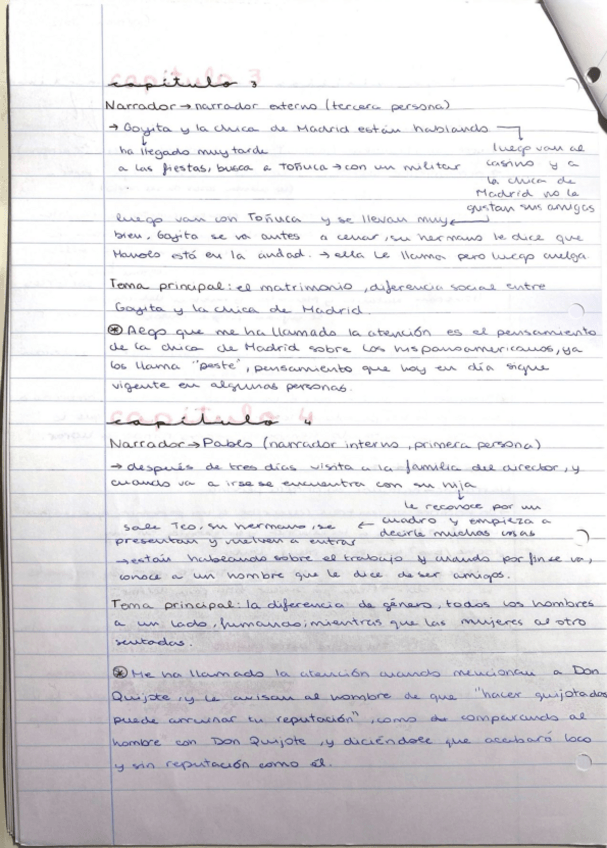 capítulo 3
Narrador → narrador externo (tercera persona)
→ Goyita y la chica de Madrid están hablando
ha llegado muy tarde
a las fiestas, busca a Toñuca → con un militar
luego van al
casino y a
la chica de
Madrid no le
gustan sus amigas
luego van con Toñuca y se llevan muy
bien, Goyita se va antes a cenar, su hermano le dice que
Manolo está en la ciudad. → ella le llama pero luego cuelga.
Tema principal: el matrimonio, diferencia social entre
Goyita y la chica de Madrid.
* Algo que me ha llamado la atención es el pensamiento
de la chica de Madrid sobre los hispanoamericanos, ya
los llama "peste", pensamiento que hoy en día sigue
vigente en algunas personas.
capítulo 4
Narrador → Pablo (narrador interno, primera persona)
→ después de tres días visita a la familia del director, y
cuando va a irse se encuentra con su hija
le reconoce por un
cuadro y empieza a
decirle muchas cosas
sale Teo, su hermano, se ←
presentan y vuelven a entrar
→ están hablando sobre el trabajo y cuando por fin se va,
conoce a un hombre que le dice de ser amigos.
Tema principal: la diferencia de género, todos los hombres
a un lado, fumando; mientras que las mujeres al otro
sentadas.
* Me ha llamado la atención cuando mencionan a Don
Quijote, y le avisan al hombre de que "hacer quijotadas
puede arruinar tu reputación", como de comparando al
hombre con Don Quijote, y diciéndole que acabará loco
y sin reputación como él.